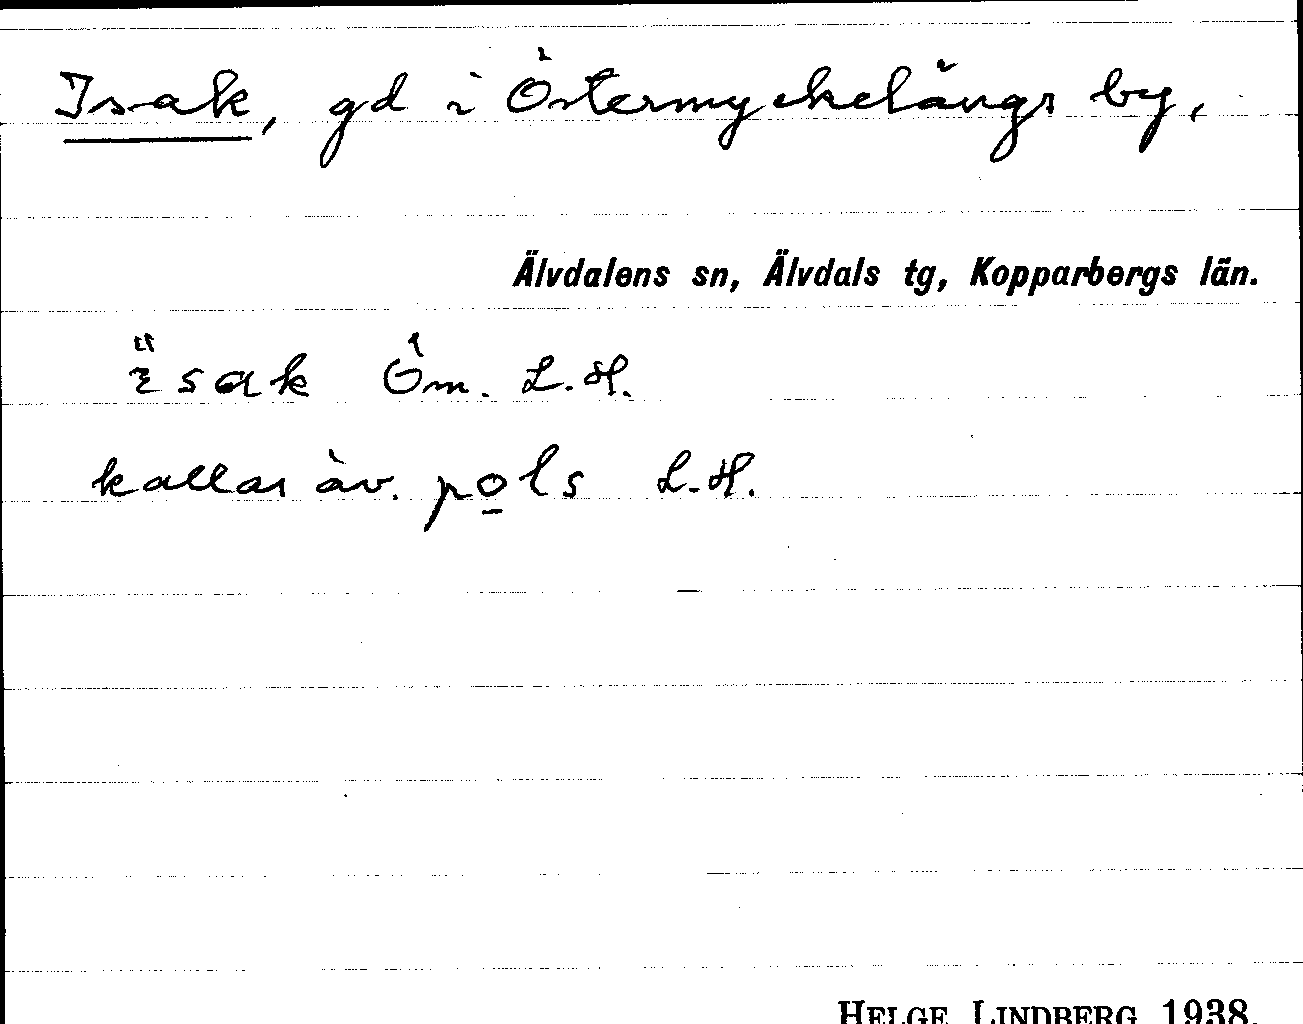 Isak, gd i Östermyckelängs by,
Älvdalens sn, Älvdals tg, Kopparbergs län.
ısak Öm. L. H.
kallas äv. po̲ls L. H.
HELGE LINDBERG 1938.